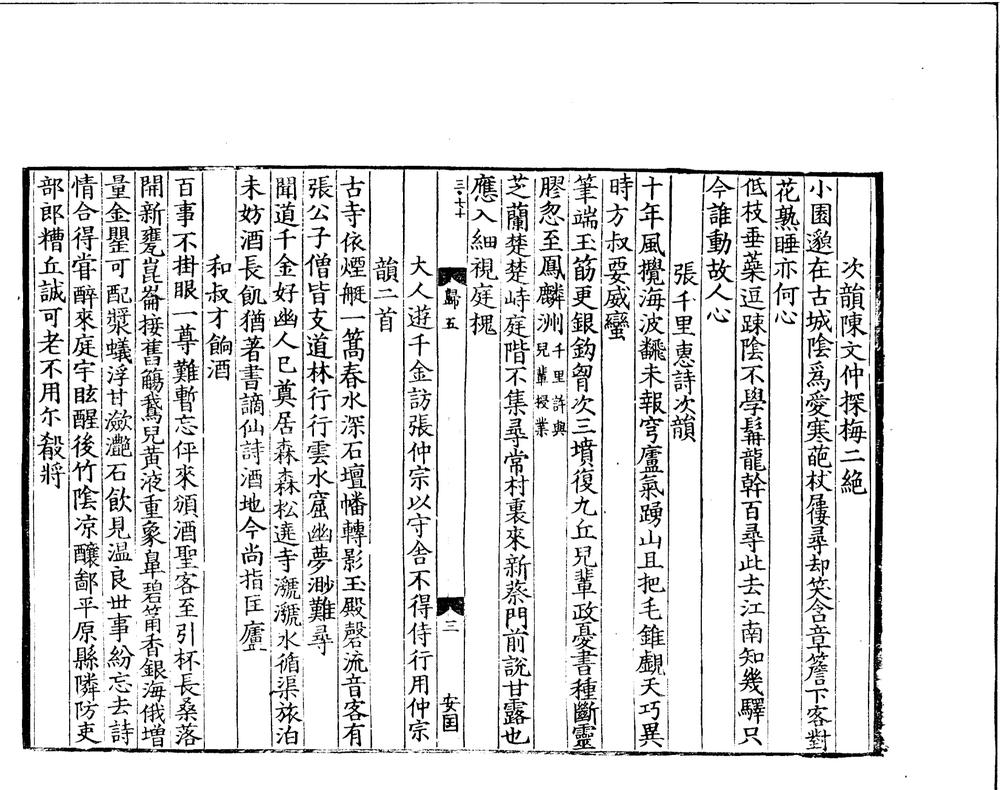 次韻陳文仲探梅二絶
小園邈在古城陰爲愛寒葩杖屨尋却笑含章簷下客對
花熟睡亦何心
低枝垂蘂逗踈陰不學髯龍幹百尋此去江南知幾驛只
今誰動故人心
張千里惠詩次韻
十年風攪海波飜未報穹廬氣踴山且把毛錐覷天巧異
時方叔要威蠻
筆端玉筯更銀鈎胷次三墳復九丘兒輩政憂書種斷靈
膠忽至鳳麟洲千里許與兒輩授業
芝蘭楚楚峙庭階不集尋常村裏來新蔡門前說甘露也
應入細視庭槐
三·七十
歸五
三
安国
大人遊千金訪張仲宗以守舍不得侍行用仲宗
韻二首
古寺依煙艇一篙春水深石壇幡轉影玉殿磬流音客有
張公子僧皆支道林行行雲水窟幽夢渺難尋
聞道千金好幽人已奠居森森松遶寺㶁㶁水循渠旅泊
未妨酒長飢猶著書謫仙詩酒地今尚指匡廬
和叔才餉酒
百事不掛眼一尊難暫忘伻來頒酒聖客至引杯長桑落
開新甕崑崙接舊觴鵞兒黃液重象鼻碧筩香銀海俄增
量金罌可配漿蟻浮甘瀲灔石飲見温良世事紛忘去詩
情合得甞醉來庭宇眩醒後竹陰凉釀鄙平原縣隣防吏
部郎糟丘誠可老不用尓殽將